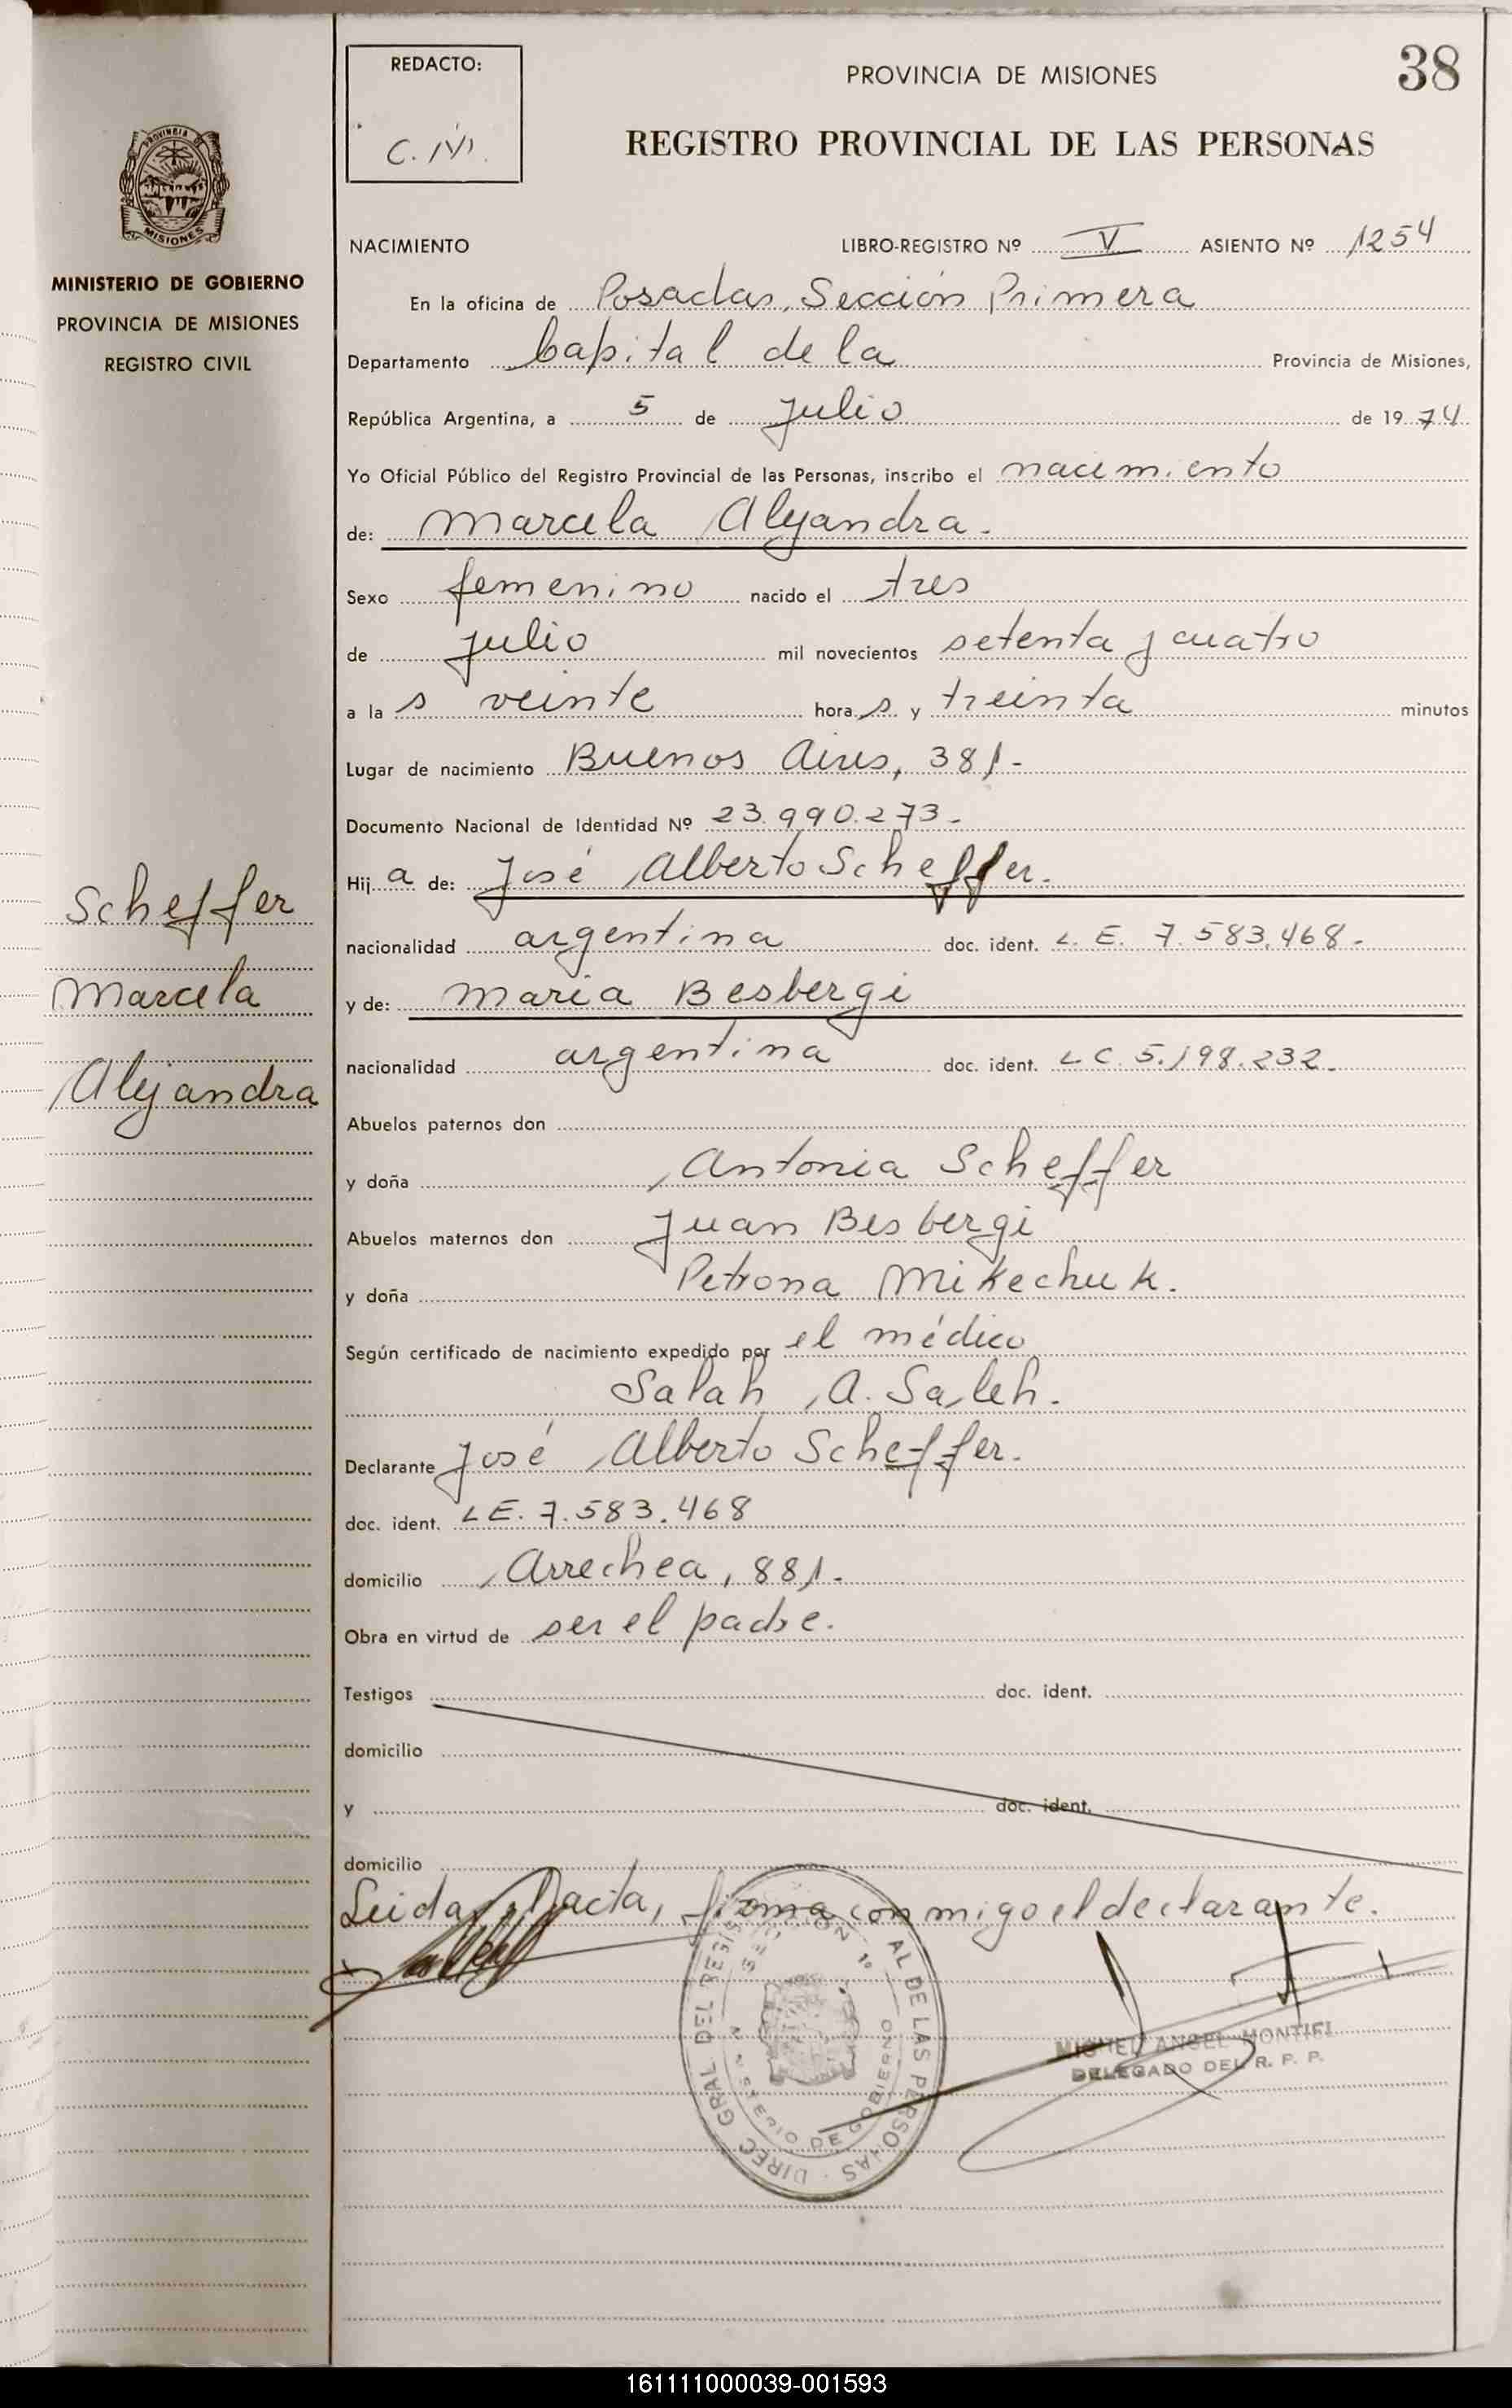 38
REDACTO:
PROVINCIA DE MISIONES
REGISTRO PROVINCIAL DE LAS PERSONAS
PROVINCIA
MISIONES
MINISTERIO DE GOBIERNO
PROVINCIA DE MISIONES
REGISTRO CIVIL
Scheffer
Marcela
Alejandra
NACIMIENTO LIBRO-REGISTRO Nº V ASIENTO Nº 1254
En la oficina de Posadas, Sección Primera
Departamento Capital de la Provincia de Misiones,
República Argentina, a 5 de Julio de 1974
Yo Oficial Público del Registro Provincial de las Personas, inscribo el nacimiento
de: Marcela Alejandra.
Sexo femenino nacido el tres
de Julio mil novecientos setenta y cuatro
a la s veinte hora s y treinta minutos
Lugar de nacimiento Buenos Aires, 381-
Documento Nacional de Identidad Nº 23.990.273-
Hij a de: José Alberto Scheffer.
nacionalidad argentina doc. ident. L. E. 7.583.468-
y de: Maria Besbergi
nacionalidad argentina doc. ident. L C. 5.198.232-
Abuelos paternos don
y doña Antonia Scheffer
Abuelos maternos don Juan Besbergi
y doña Petrona Mikechuk.
Según certificado de nacimiento expedido por el médico
Salah A. Saleh.
Declarante José Alberto Scheffer.
doc. ident. L E. 7.583.468
domicilio Arrechea, 881-
Obra en virtud de ser el padre.
Testigos doc. ident.
domicilio
y doc. ident.
domicilio
Leida el acta, firma conmigo el declarante.
DIREC GRAL DEL REGIS AL DE LAS PERSONAS
SECCION 1º
MINISTERIO DE GOBIERNO
MIGUEL ANGEL MONTIEL
DELEGADO DEL R. P. P.
161111000039-001593